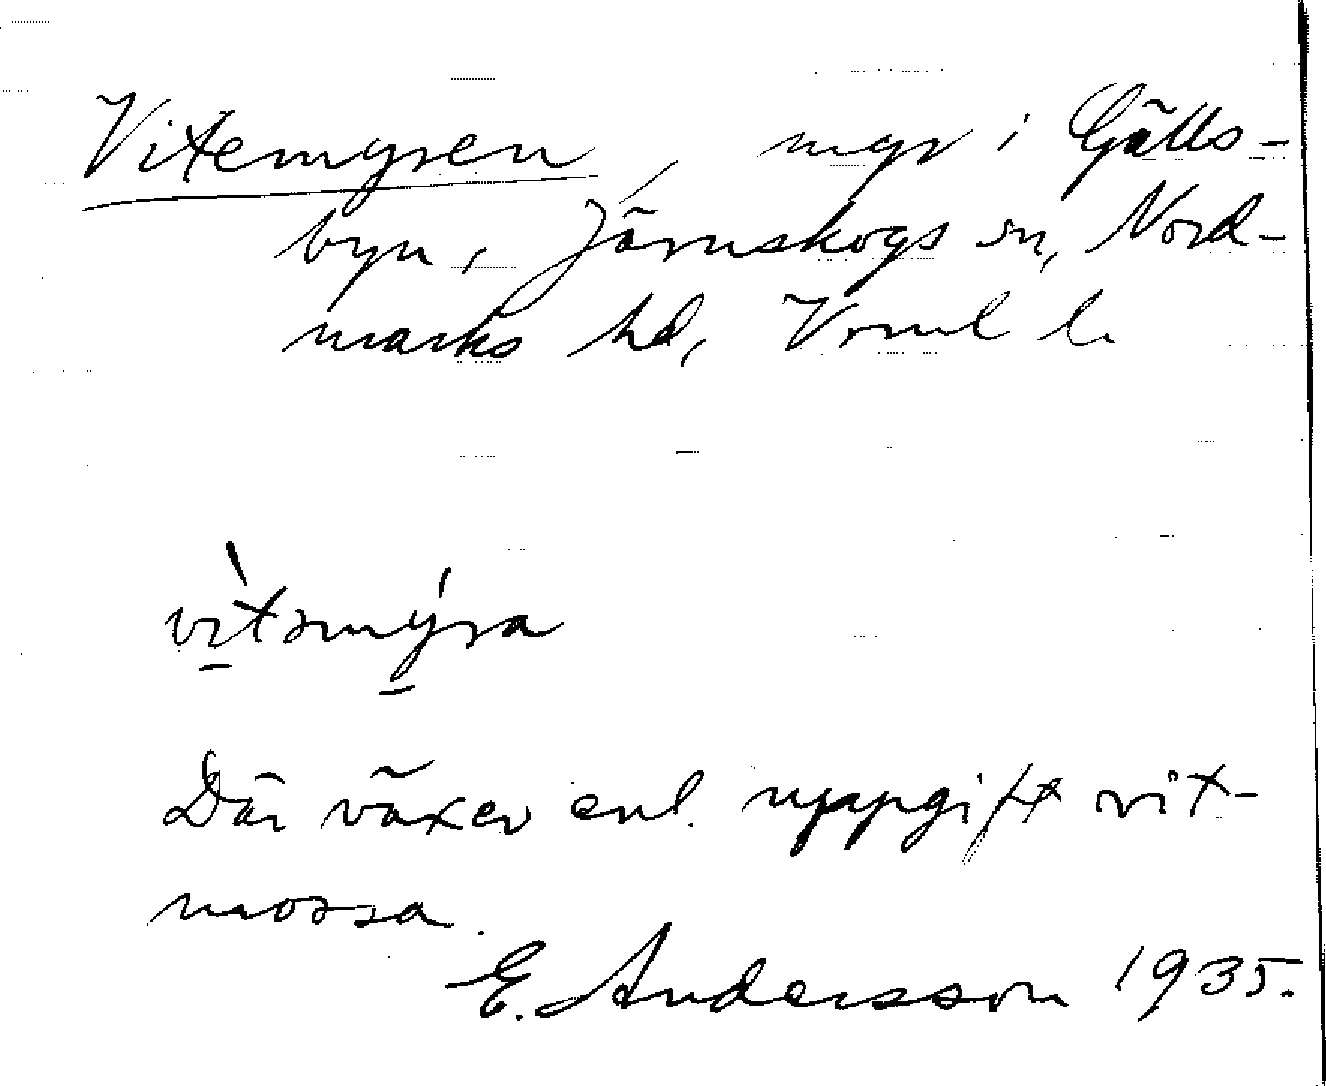 Vitemyren, myr i Gälls-
byn, Järnskogs sn, Nord-
marks hd, Vrml l.
vi̠təmy̠ra
Där växer enl. uppgift vit-
mossa.
E. Andersson 1935.